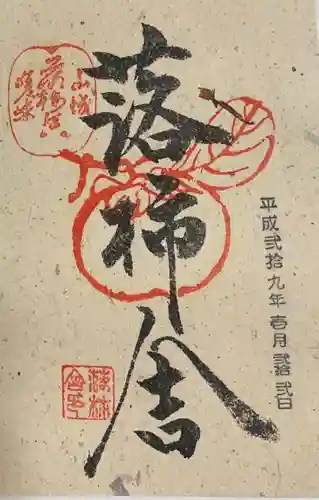 平成弐拾九年壱月弐拾弐日
落柿舎
山城
嵯峨
落柿舎